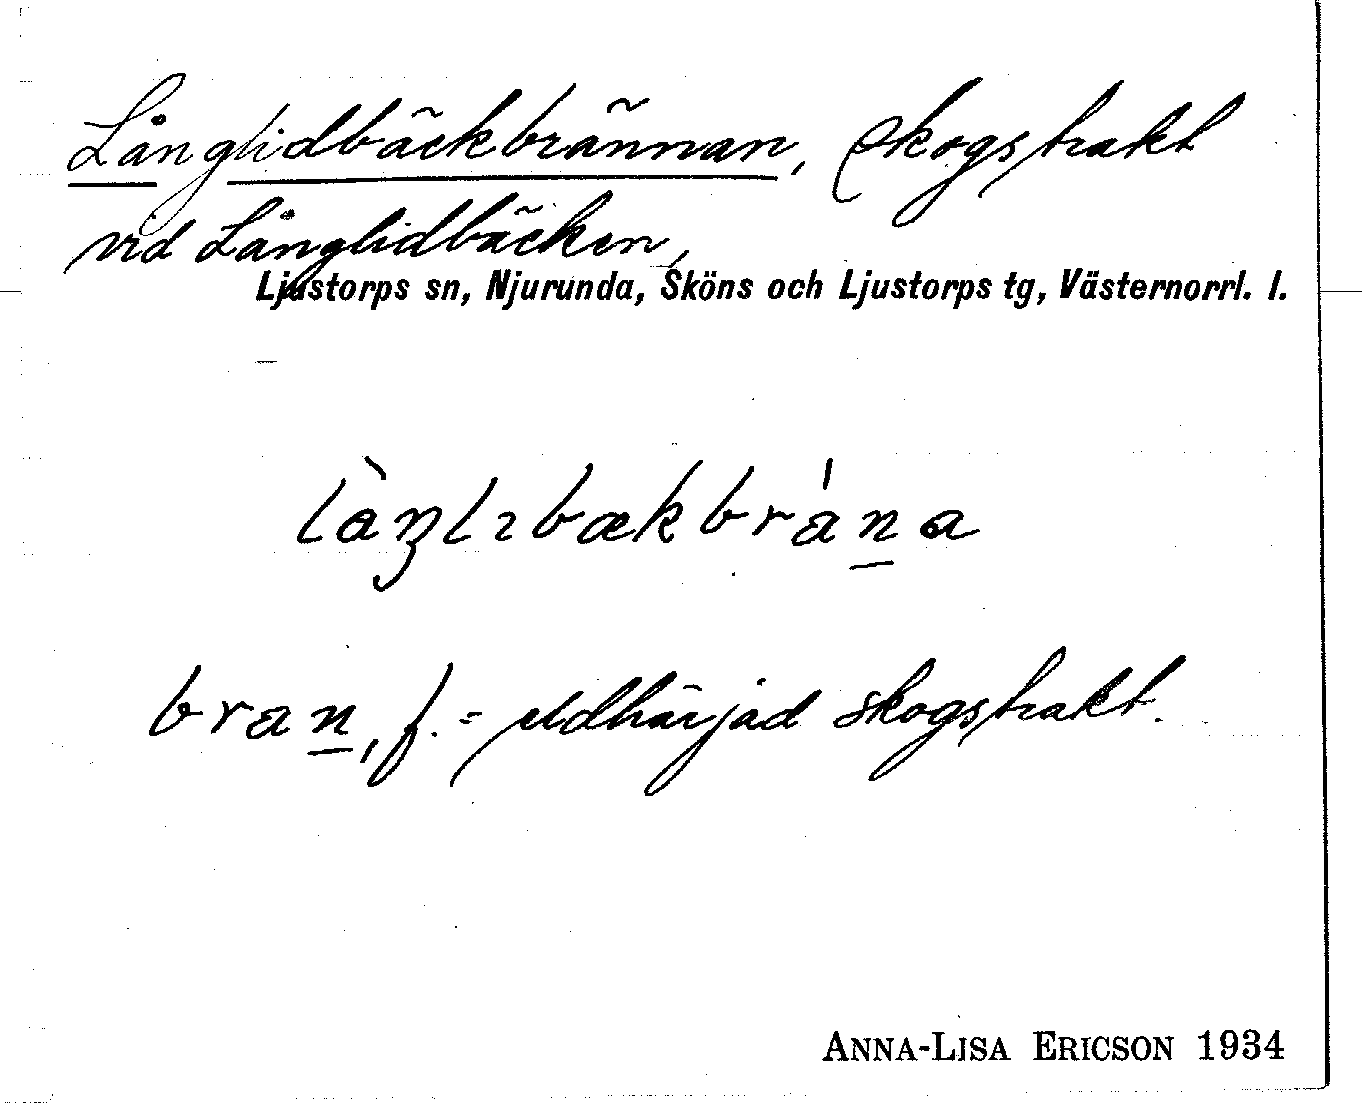 Långlidbäckbrännan, skogstrakt
vid Långlidbäcken,
Ljustorps sn, Njurunda, Sköns och Ljustorps tg, Västernorrl. l.
làŋlɩbækbrána
bran, f. = eldhärjad skogstrakt.
ANNA-LISA ERICSON 1934